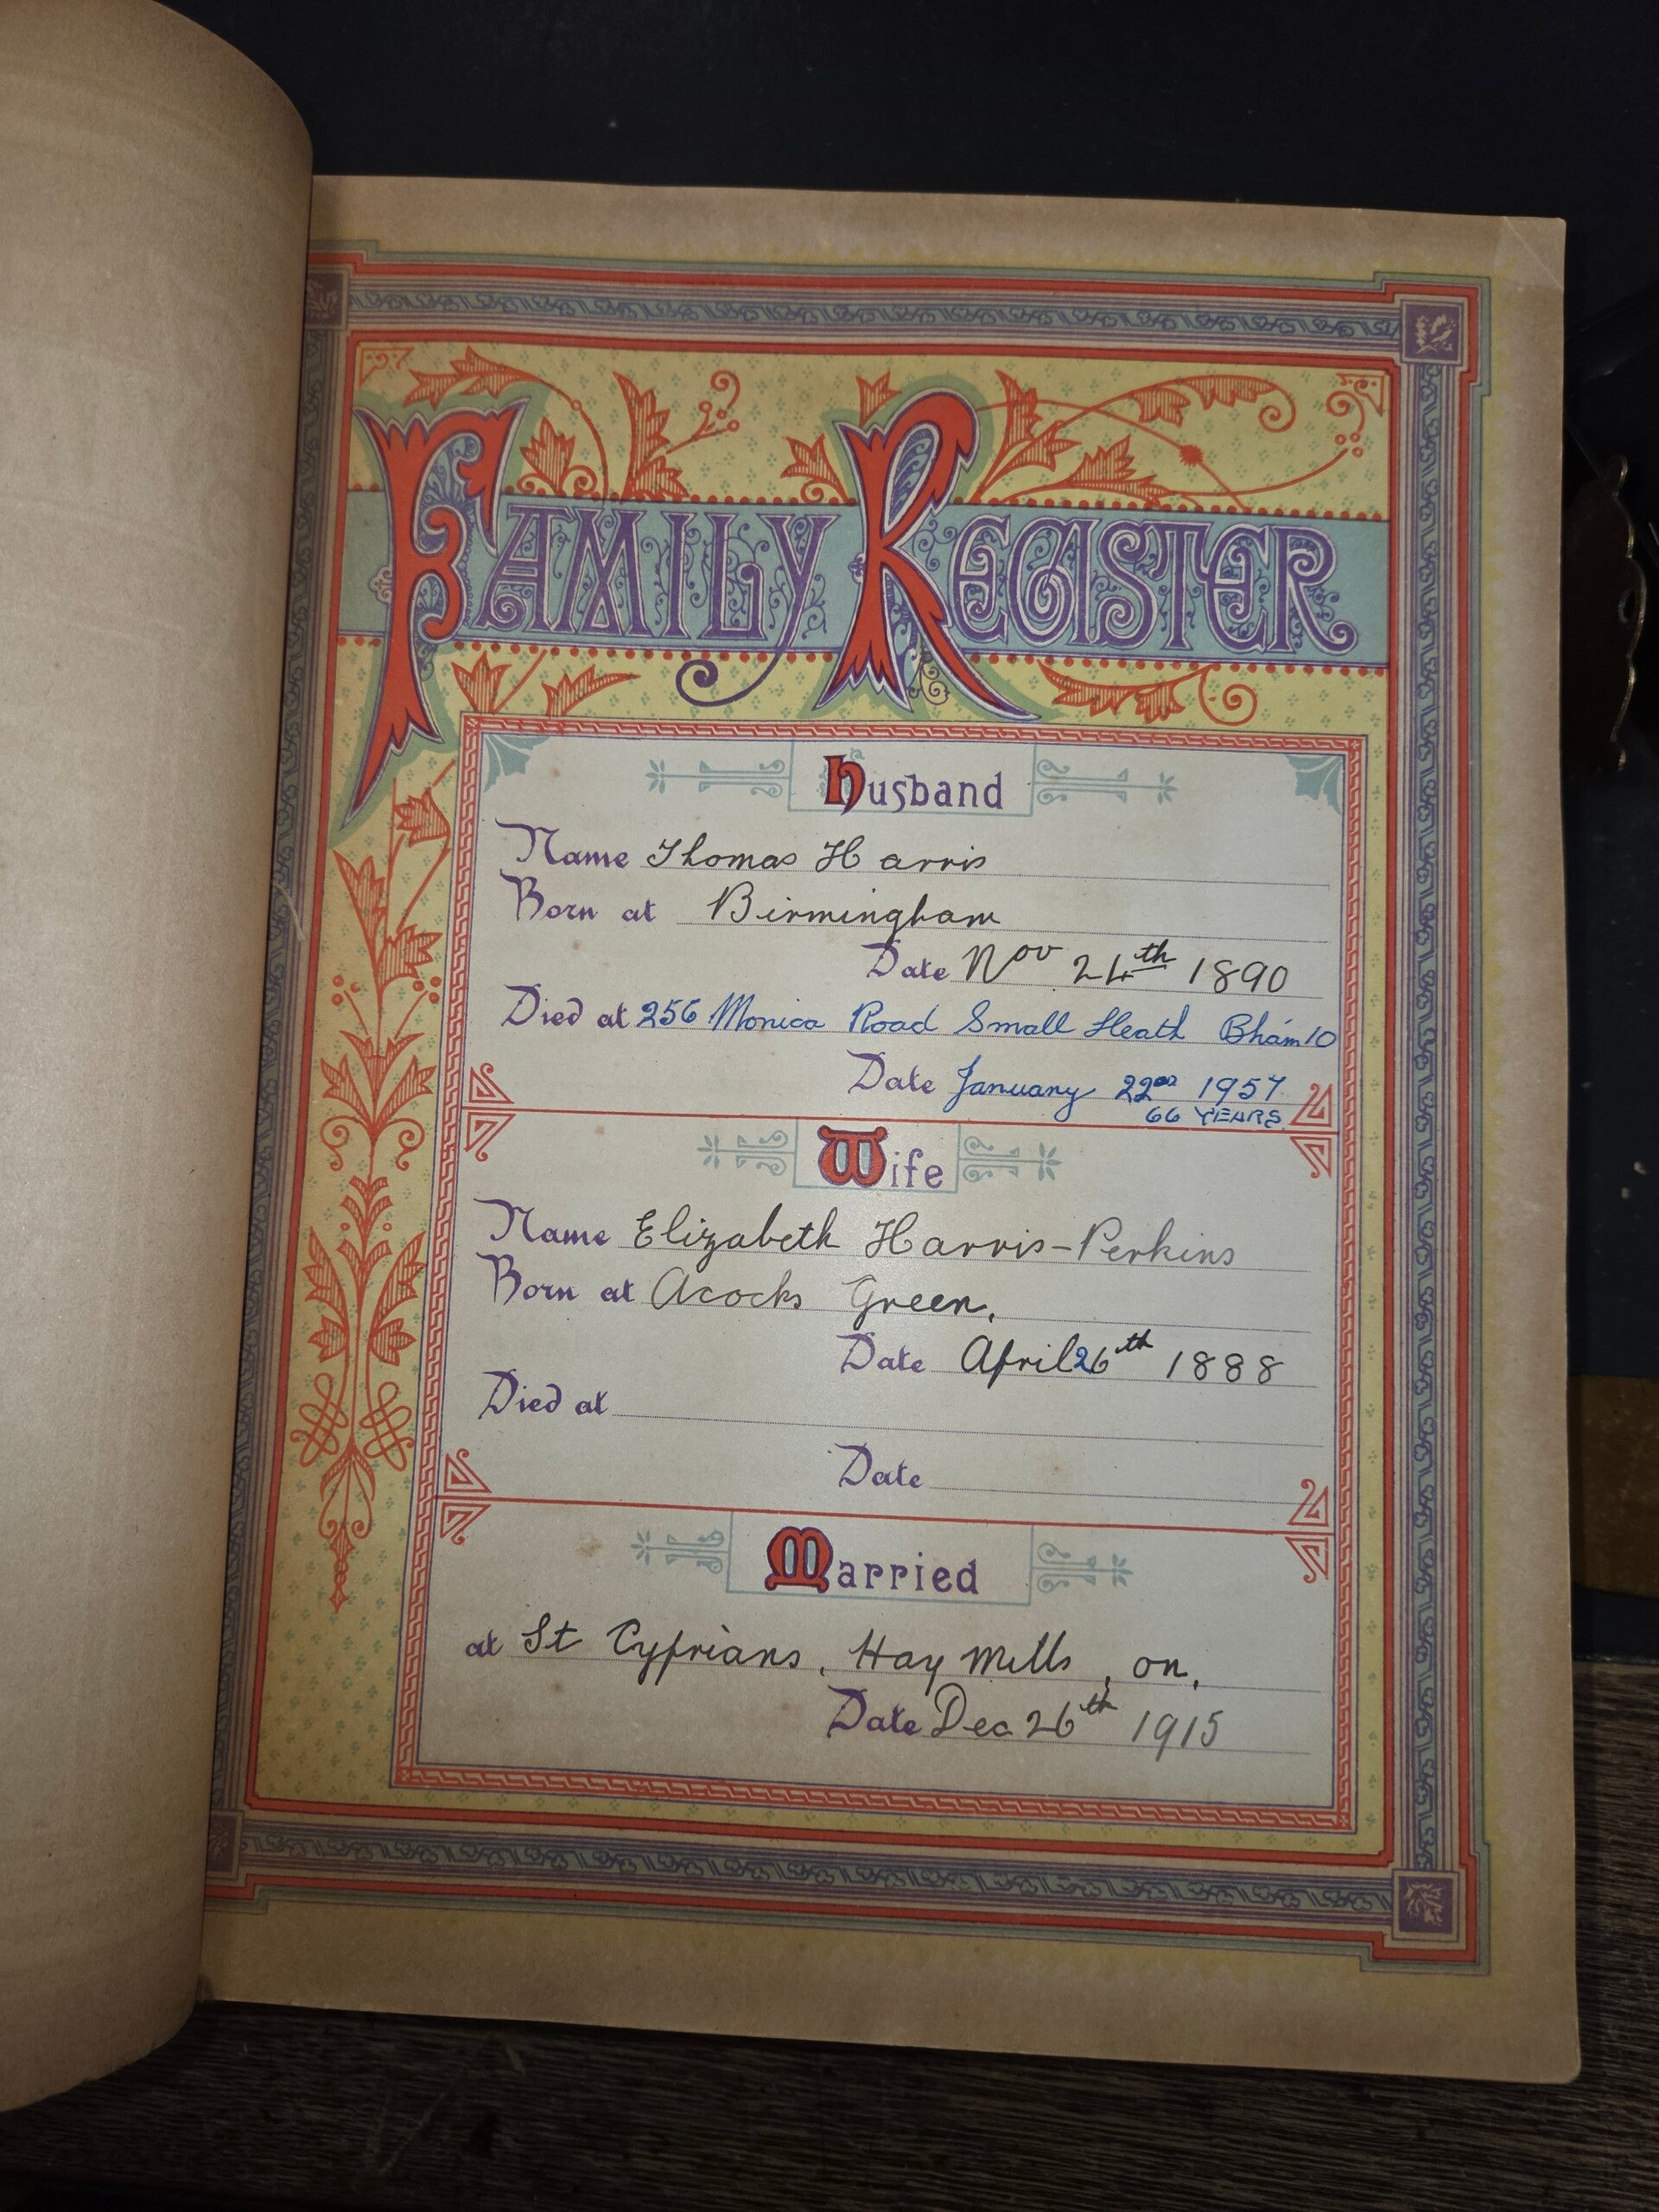 FAMILY REGISTER
Husband
Name Thomas Harris
Born at Birmingham
Date Nov 24th 1890
Died at 256 Monica Road Small Heath B'ham 10
Date January 22nd 1957
66 YEARS.
Wife
Name Elizabeth Harris-Perkins
Born at Acocks Green.
Date April 26th 1888
Died at
Date
Married
at St Cyprians, Hay Mills, on,
Date Dec 26th 1915